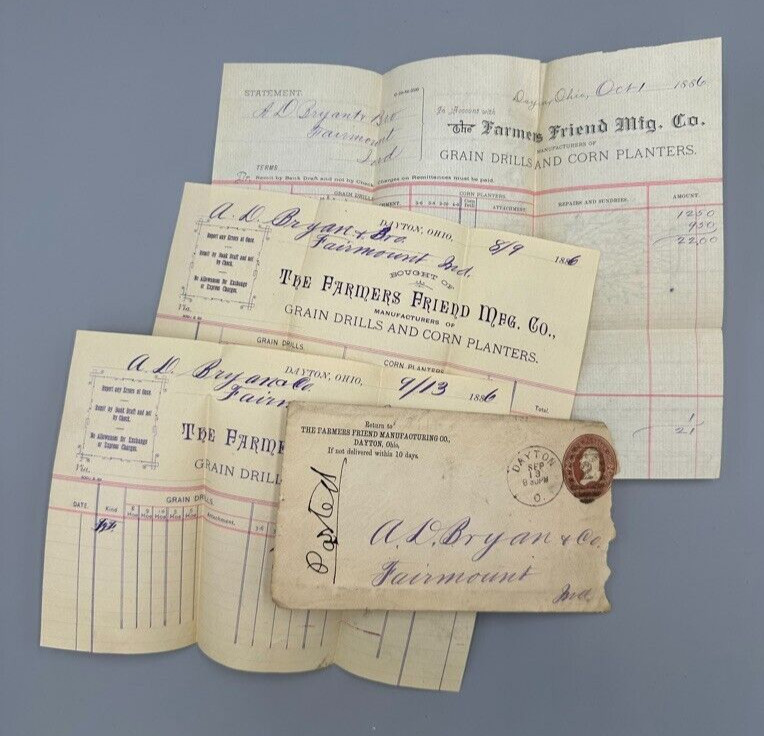 STATEMENT.
Dayton, Ohio, Oct 1 1886
A D Bryant & Bro
Fairmount
Ind
In Account with
The Farmers Friend Mfg. Co.
MANUFACTURERS OF
GRAIN DRILLS AND CORN PLANTERS.
TERMS
Dr. Remit by Bank Draft and not by Check. Charges on Remittances must be paid.
GRAIN DRILLS
CORN PLANTERS.
ATTACHMENT.
REPAIRS AND SUNDRIES.
AMOUNT.
1250
950
2200
A. D. Bryan & Bro.
Fairmount Ind.
DAYTON, OHIO, 8/9 1886
Report any Errors at Once.
Remit by Bank Draft and not by Check.
No Allowances for Exchange or Express Charges.
BOUGHT OF
THE FARMERS FRIEND MFG. CO.,
MANUFACTURERS OF
GRAIN DRILLS AND CORN PLANTERS.
No.
GRAIN DRILLS.
CORN PLANTERS
Total.
A. D. Bryan & Co.
Fairm
DAYTON, OHIO, 9/13 1886
Report any Errors at Once.
Remit by Bank Draft and not by Check.
No Allowances for Exchange or Express Charges.
THE FARME
GRAIN DRILL
No.
GRAIN DRILLS.
DATE.
Kind
Attachment.
Return to
THE FARMERS FRIEND MANUFACTURING CO.,
DAYTON, Ohio.
If not delivered within 10 days.
DAYTON
SEP
13
8 30PM
O.
A. D. Bryan & Co.
Fairmount
Ind.